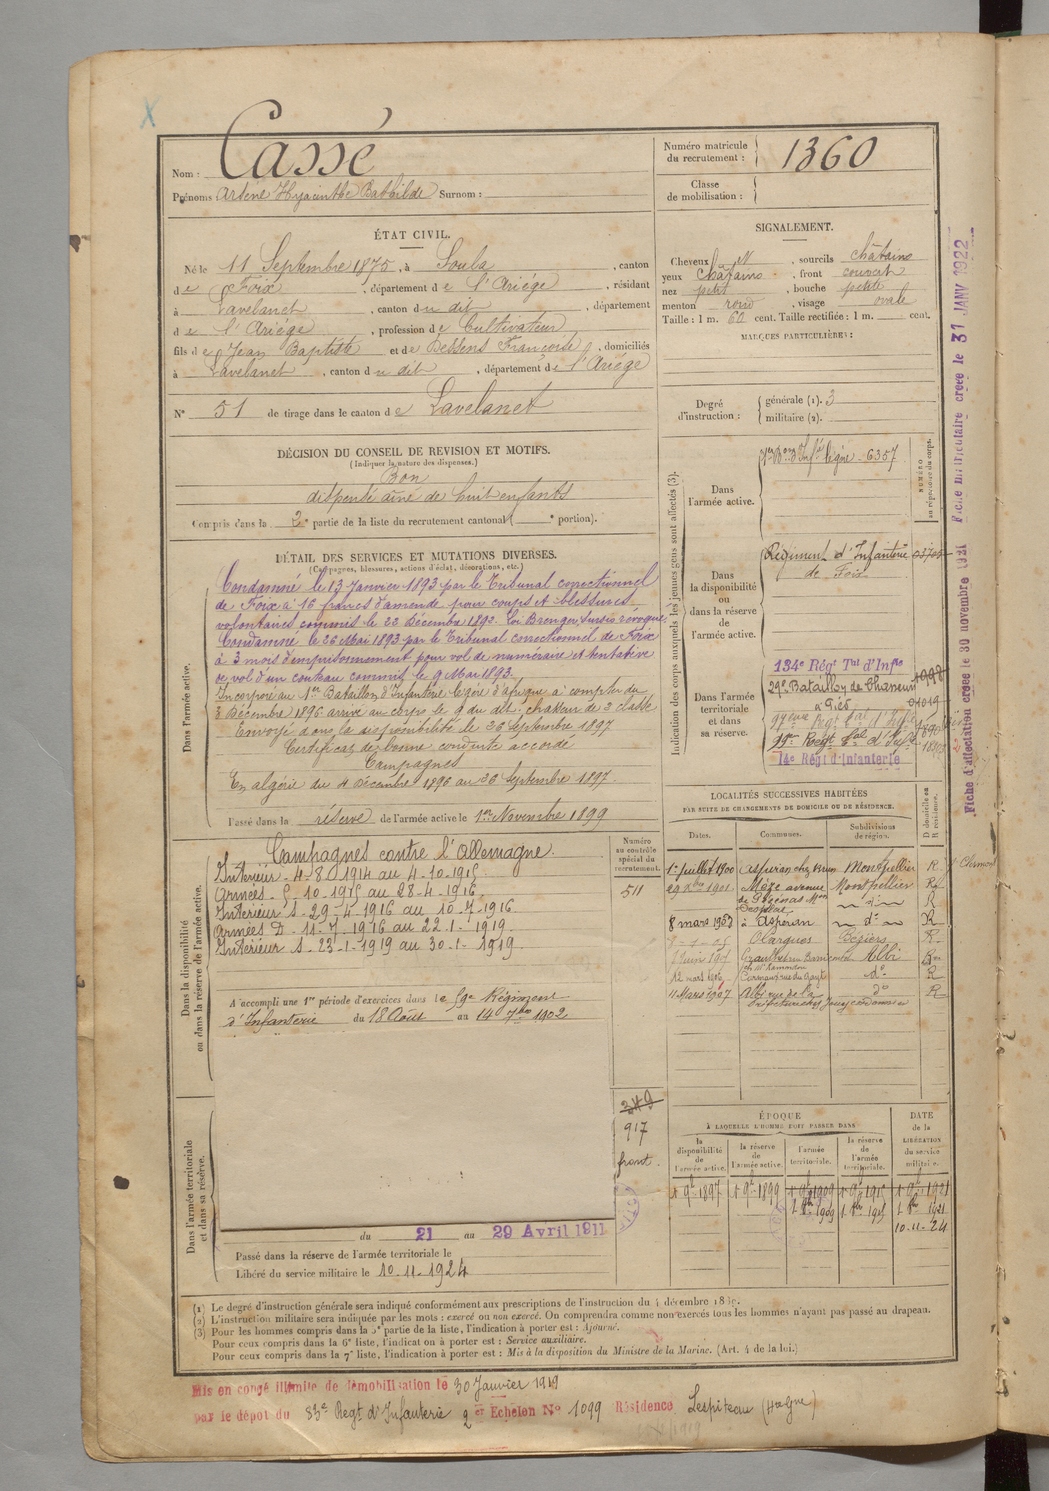 Nom : Cassé
Prénoms Arsène Hyacinthe Bathilde Surnom :
Numéro matricule du recrutement : 1360
Classe de mobilisation :
ÉTAT CIVIL.
Né le 11 Septembre 1875, à Soula, canton
de Foix, département de l'Ariége, résidant
à Lavelanet, canton du dit, département
de l'Ariége, profession de Cultivateur
fils de Jean Baptiste et de Dessens Françoise, domiciliés
à Lavelanet, canton du dit, département de l'Ariége
N° 51 de tirage dans le canton de Lavelanet
SIGNALEMENT.
Cheveux N, sourcils châtains
yeux châtains, front couvert
nez petit, bouche petite
menton rond, visage ovale
Taille : 1 m. 60 cent. Taille rectifiée : 1 m. cent.
MARQUES PARTICULIÈRES :
Degré d'instruction : générale (1). 3
militaire (2).
DÉCISION DU CONSEIL DE REVISION ET MOTIFS.
(Indiquer la nature des dispenses.)
Bon
dispensé aîné de huit enfants
Compris dans la 2e partie de la liste du recrutement cantonal ( e portion).
DÉTAIL DES SERVICES ET MUTATIONS DIVERSES.
(Campagnes, blessures, actions d'éclat, décorations, etc.)
Dans l'armée active.
Condamné le 13 Janvier 1893 par le Tribunal correctionnel
de Foix à 16 francs d'amende pour coups et blessures
volontaires commis le 22 Décembre 1892. Loi Berenger Sursis révoqué
Condamné le 26 Mai 1893 par le Tribunal correctionnel de Foix
à 3 mois d'emprisonnement pour vol de numéraire et tentative
de vol d'un couteau commis le 9 Mai 1893.
Incorporé au 1er Bataillon d'Infanterie légère d'afrique à compter du
3 Décembre 1896 arrivé au corps le 9 du dit. chasseur de 2e classe
Envoyé dans la disponibilité le 26 Septembre 1897
Certificat de bonne conduite accordé
Campagnes
En algérie du 4 Décembre 1896 au 26 Septembre 1897.
Passé dans la réserve de l'armée active le 1er Novembre 1899
Dans la disponibilité ou dans la réserve de l'armée active.
Campagnes contre l'Allemagne.
Intérieur 4-8-1914 au 4-10-1915
Armées 5-10-1915 au 28-4-1916
Intérieur S. 29-4-1916 au 10-7-1916
Armées D. 11-7-1916 au 22-1-1919
Intérieur S. 23-1-1919 au 30-1-1919
A accompli une 1re période d'exercices dans le Régiment
d'Infanterie du 18 Août au 14 7bre 1902
Numéro au contrôle spécial du recrutement.
511
249
917
front.
Dans l'armée territoriale et dans sa réserve.
du 21 au 29 Avril 1911
Passé dans la réserve de l'armée territoriale le
Libéré du service militaire le 10-11-1924
Indication des corps auxquels les jeunes gens sont affectés (3).
NUMÉRO au répertoire du corps.
Dans l'armée active.
1er Bon d'Infie légère 6357
Dans la disponibilité ou dans la réserve de l'armée active.
Régiment d'Infanterie
de Foix
Dans l'armée territoriale et dans sa réserve.
134e Régt Tal d'Infie
29e Bataillon de Chasseurs
à Pied
99e Régt Tal d'Infie
74e Régt d'Infanterie
LOCALITÉS SUCCESSIVES HABITÉES
PAR SUITE DE CHANGEMENTS DE DOMICILE OU DE RÉSIDENCE.
Dates. Communes. Subdivisions de région. D domicile ou R résidence.
1er Juillet 1900 Aspiran chez Brun Montpellier R
1901 Mèze avenue Montpellier R
de Pézenas Mon
8 mars 1903 à Aspiran do R
Olargues Béziers R
Albi R
12 mars 1906 do R
11 Mars 1907 Albi rue de la do R
ÉPOQUE
À LAQUELLE L'HOMME DOIT PASSER DANS
la disponibilité de l'armée active. la réserve de l'armée active. l'armée territoriale. la réserve de l'armée territoriale.
DATE de la LIBÉRATION du service militaire.
1 9bre 1897 1 9bre 1899 1 9bre 1909 1 9bre 1915 1 9bre 1921
1 8bre 1909 1 8bre 1915 1 8bre 1921
10-11-24
(1) Le degré d'instruction générale sera indiqué conformément aux prescriptions de l'instruction du 4 décembre 1889.
(2) L'instruction militaire sera indiquée par les mots : exercé ou non exercé. On comprendra comme non exercés tous les hommes n'ayant pas passé au drapeau.
(3) Pour les hommes compris dans la 5e partie de la liste, l'indication à porter est : Ajourné.
Pour ceux compris dans la 6e liste, l'indication à porter est : Service auxiliaire.
Pour ceux compris dans la 7e liste, l'indication à porter est : Mis à la disposition du Ministre de la Marine. (Art. 4 de la loi.)
Mis en congé illimité de démobilisation le 30 Janvier 1919
par le dépôt du 83e Regt d'Infanterie 2e Echelon N° 1099 Résidence Lespiteau (Hte Gne)
Fiche d'affectation créée le 30 novembre 1921 Fiche matriculaire créée le 31 JANV 1922